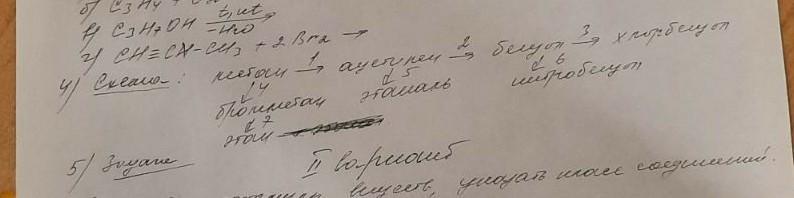 б) C3H4 +
в) C3H7OH t, кат → -H2O
г) CH≡CH-CH3 + 2Br2 →
4) Схема: метан 1→ ацетилен 2→ бензол 3→ хлорбензол
↓4 ↓5 ↓6
бромметан этаналь нитробензол
↓7
этан
5) Задача
II вариант
веществ, указать класс соединений.